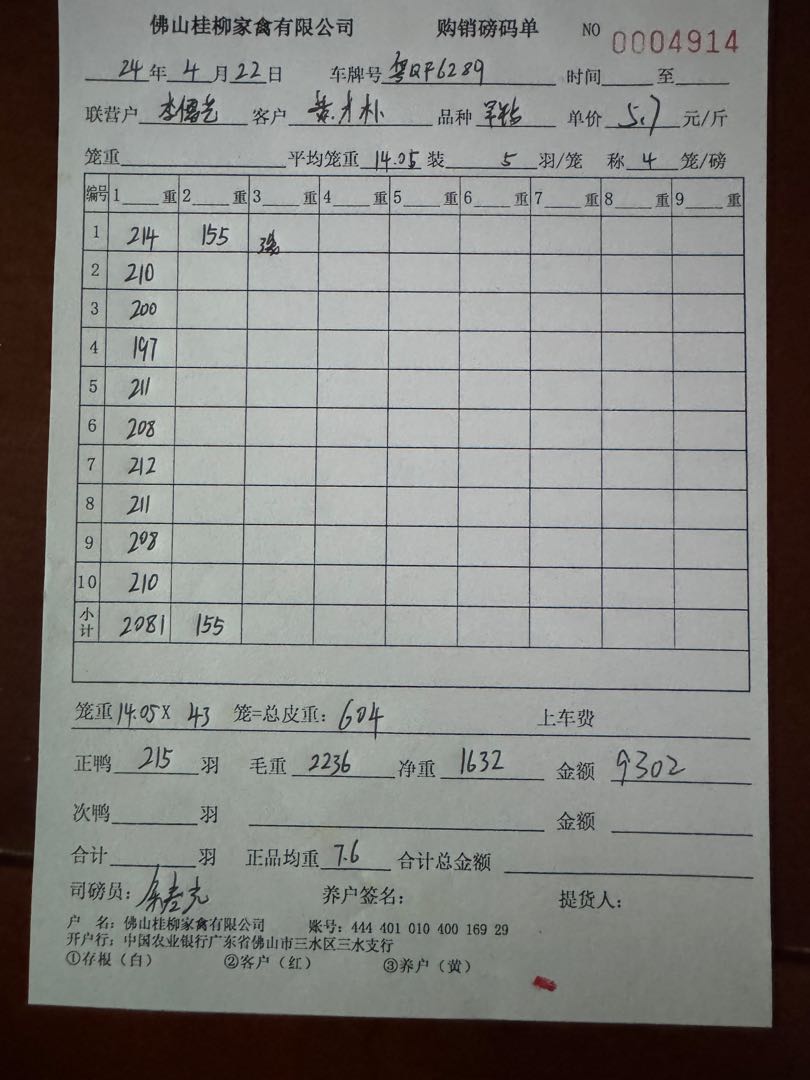 佛山桂柳家禽有限公司 购销磅码单 NO 0004914
24年4月22日 车牌号 粤QF6289 时间 至
联营户 客户 黄才朴 品种 单价 5.7 元/斤
笼重 平均笼重 14.05 装 5 羽/笼 称 4 笼/磅
编号 1 重 2 重 3 重 4 重 5 重 6 重 7 重 8 重 9 重
1 214 155 3笼
2 210
3 200
4 197
5 211
6 208
7 212
8 211
9 208
10 210
小计 2081 155
笼重 14.05 X 43 笼=总皮重: 604 上车费
正鸭 215 羽 毛重 2236 净重 1632 金额 9302
次鸭 羽 金额
合计 羽 正品均重 7.6 合计总金额
司磅员: 养户签名: 提货人:
户 名: 佛山桂柳家禽有限公司 账号: 444 401 010 400 169 29
开户行: 中国农业银行广东省佛山市三水区三水支行
①存根（白） ②客户（红） ③养户（黄）